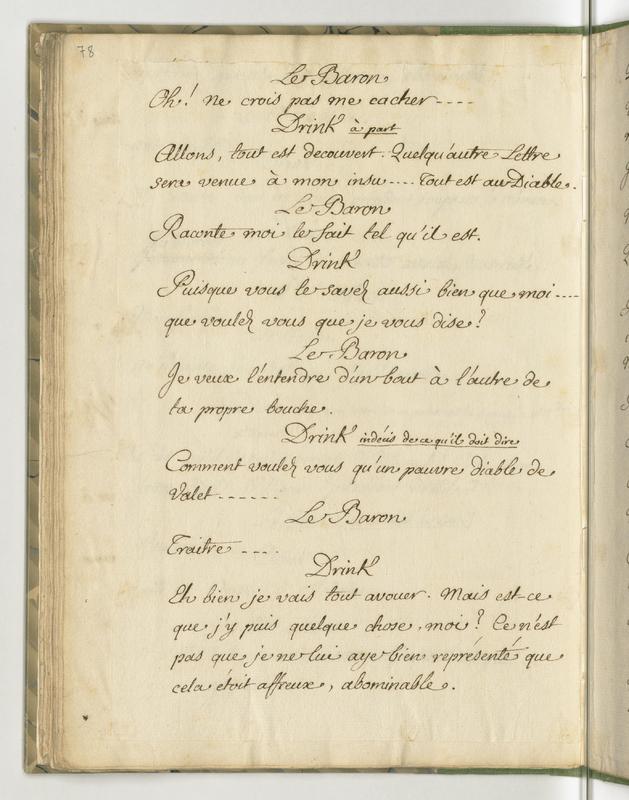 78
Le Baron
Oh! ne crois pas me cacher ----
Drink à part
Allons, tout est decouvert. Quelqu'autre Lettre
sera venue à mon insu .... Tout est au Diable.
Le Baron
Raconte moi le fait tel qu'il est.
Drink
Puisque vous le savez aussi bien que moi ....
que voulez vous que je vous dise?
Le Baron
Je veux l'entendre d'un bout à l'autre de
ta propre bouche.
Drink indécis de ce qu'il doit dire
Comment voulez vous qu'un pauvre diable de
Valet ------
Le Baron
Traitre ----
Drink
Eh bien je vais tout avouer. Mais est-ce
que j'y puis quelque chose, moi? Ce n'est
pas que je ne lui aye bien représenté que
cela étoit affreux, abominable.